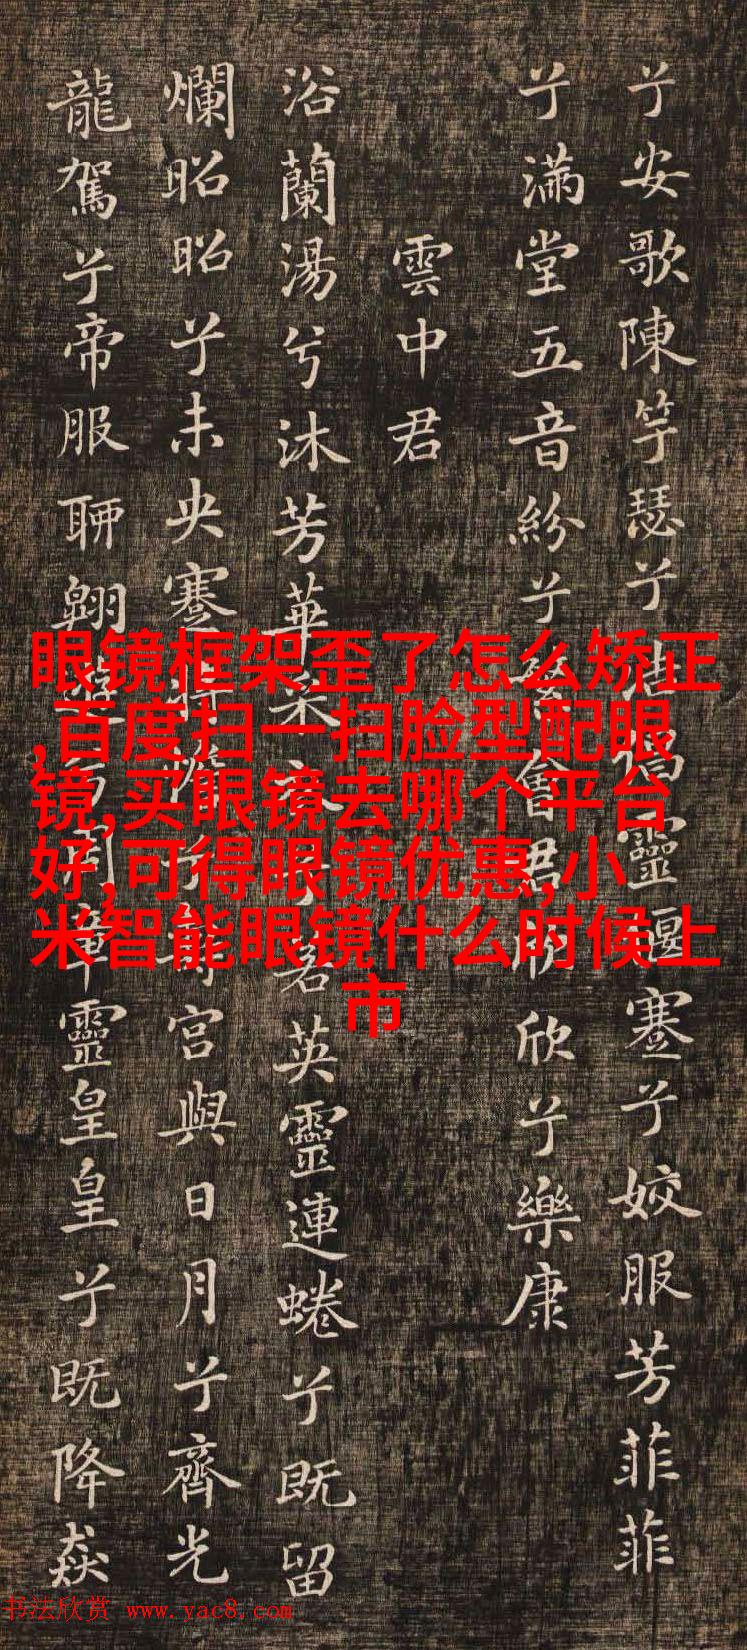 兮安歌陳竽瑟兮浩倡靈偃蹇兮姣服芳菲菲
兮滿堂五音紛兮繁會君欣欣兮樂康
雲中君
浴蘭湯兮沐芳華采衣兮若英靈連蜷兮既留
爛昭昭兮未央蹇將憺兮壽宮與日月兮齊光
龍駕兮帝服聊翱遊兮周章靈皇皇兮既降猋
眼镜框架歪了怎么矫正
,百度扫一扫脸型配眼
镜,买眼镜去哪个平台
好,可得眼镜优惠,小
米智能眼镜什么时候上
市
书法欣赏 www.yac8.com